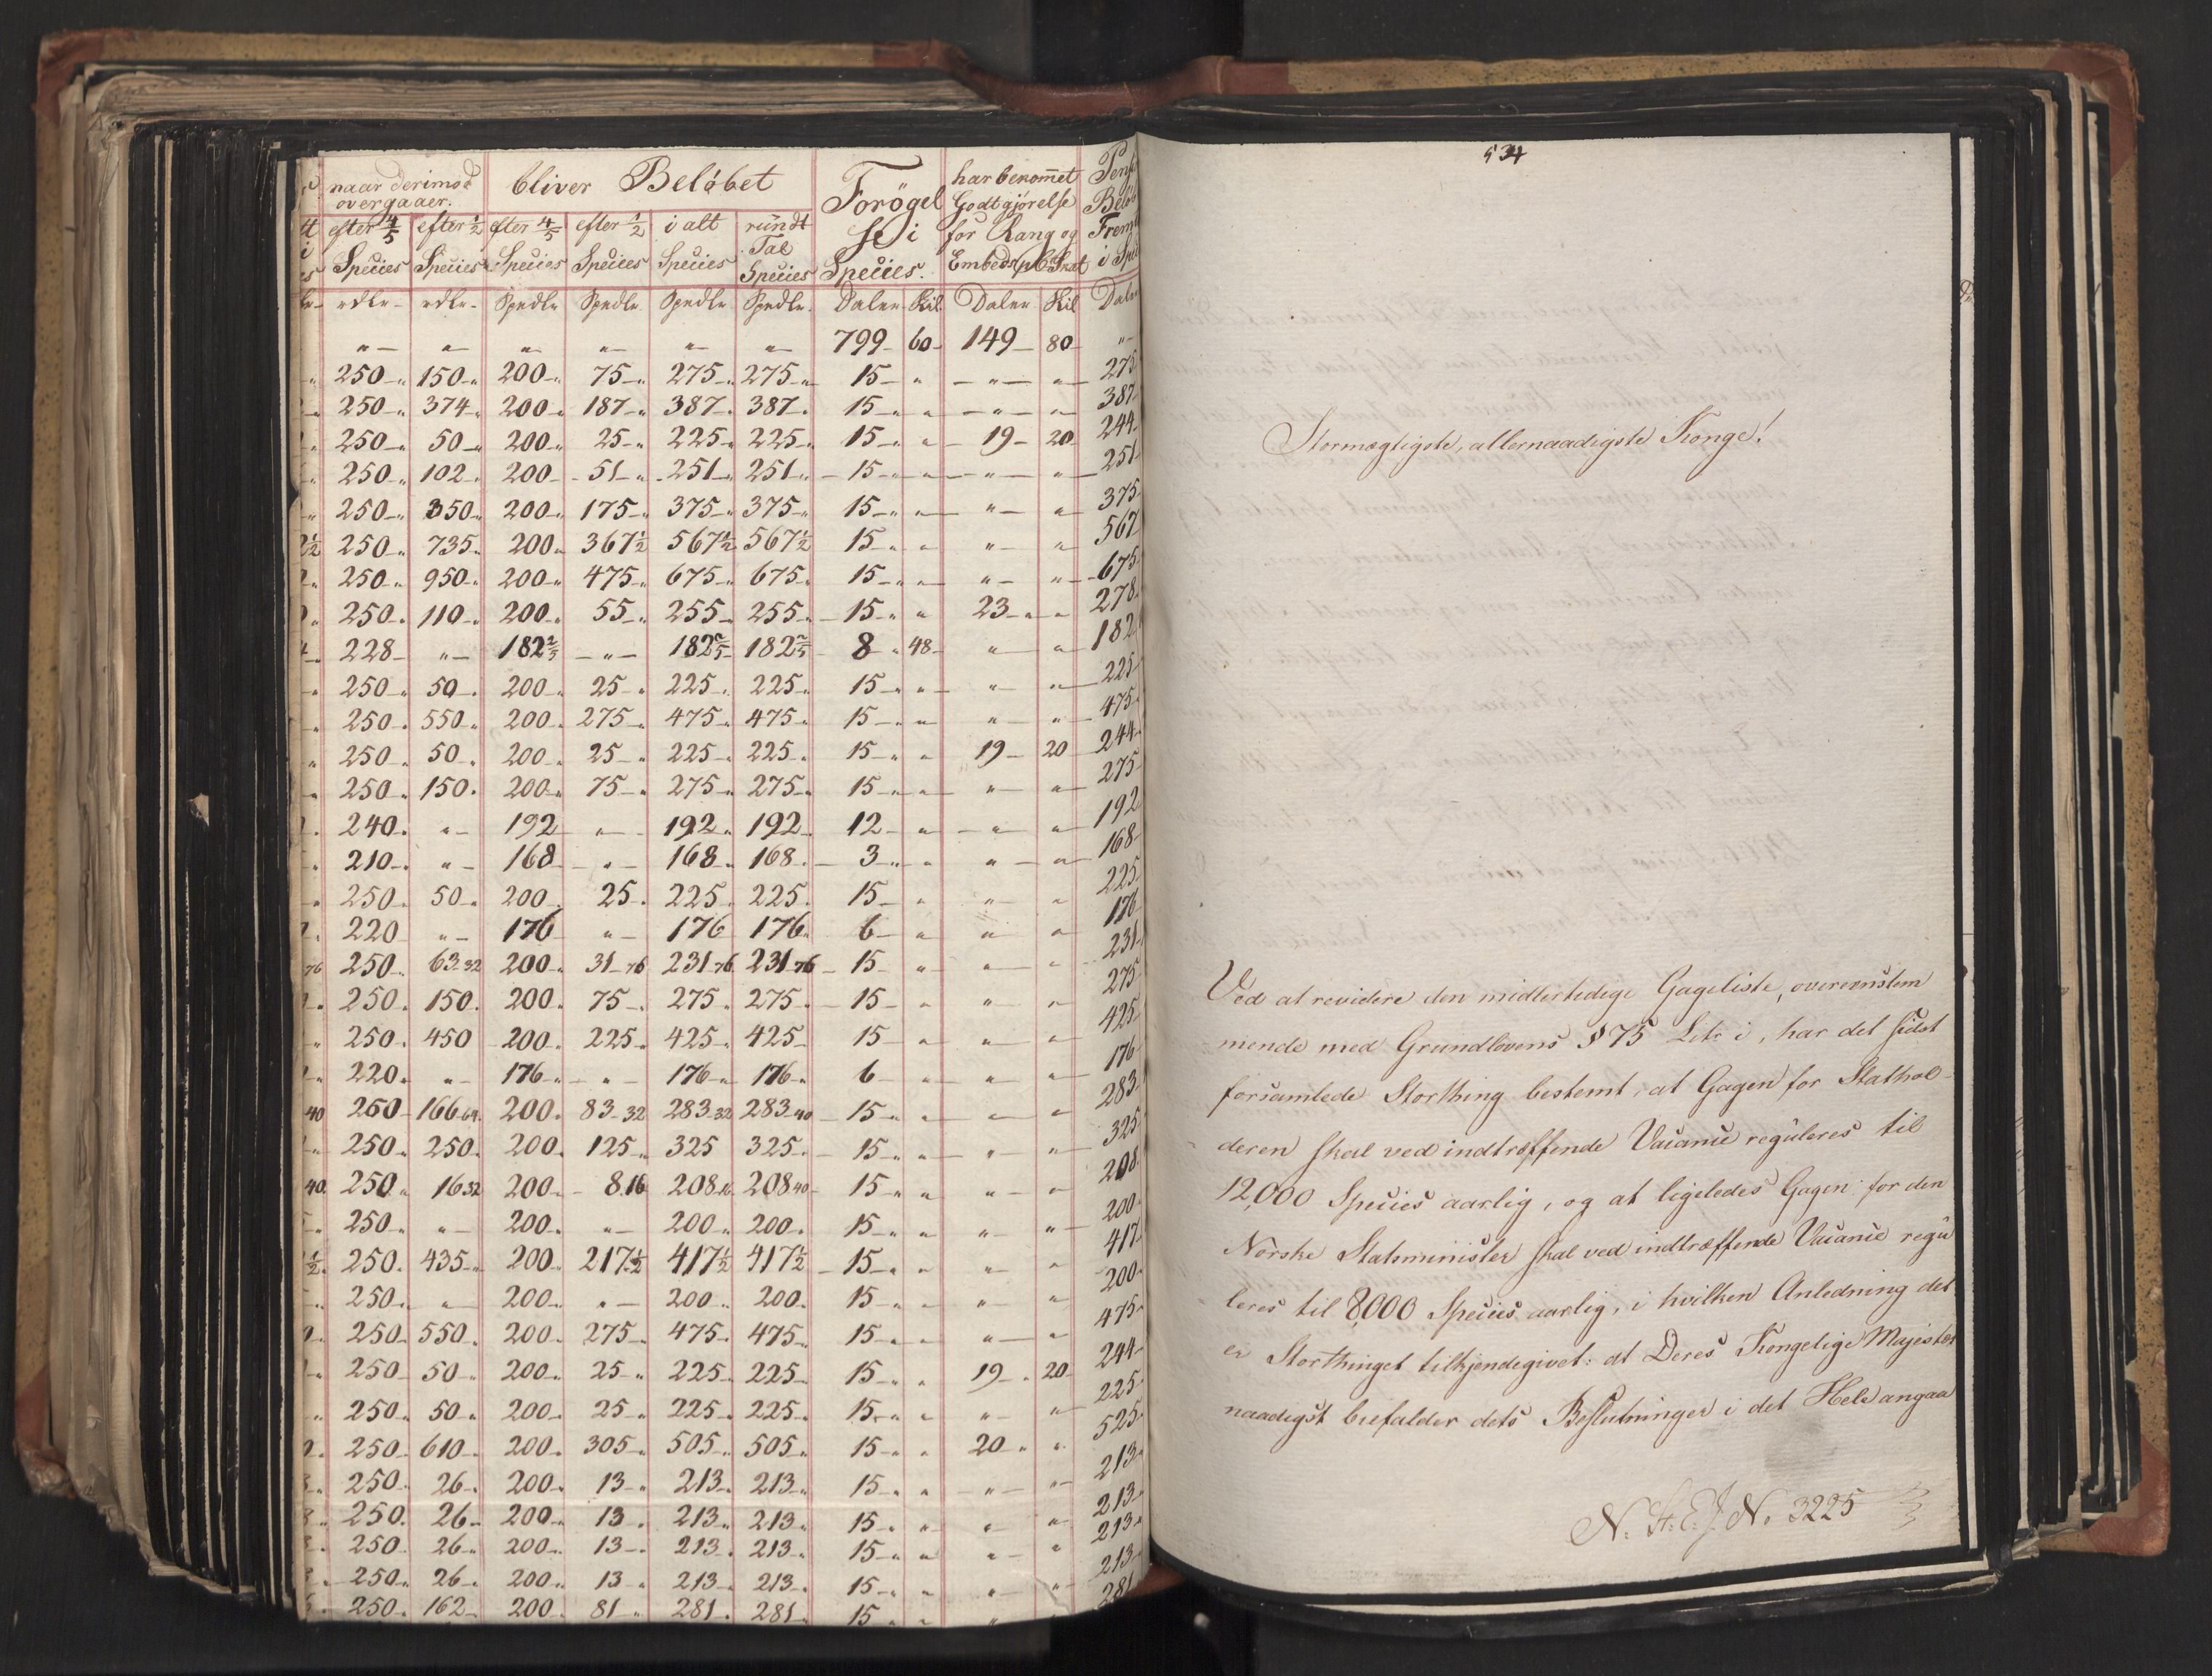 naar derimod
overgaaer.
bliver Beløbet
Forøgel
se i
Species.
har bekommet
Godtgjørelse
for Rang og
Embeds
Skat
efter 4/5 efter 1/2 efter 4/5 efter 1/2 i alt rundt
Tal
Species Species Species Species Species Species
rdlr rdlr Spedlr Spedlr Spedlr Spedlr Daler Skil Daler Skil Daler
" " " " " " 799 60 149 80 "
250 150 200 75 275 275 15 " " " 275
250 374 200 187 387 387 15 " " " 387
250 50 200 25 225 225 15 " 19 20 244
250 102 200 51 251 251 15 " " " 251
250 350 200 175 375 375 15 " " " 375
250 735 200 367 1/2 567 1/2 567 1/2 15 " " " 567
250 950 200 475 675 675 15 " " " 675
250 110 200 55 255 255 15 " 23 " 278
228 " 182 2/5 " 182 2/5 182 2/5 8 48 " " 182
250 50 200 25 225 225 15 " " " 225
250 550 200 275 475 475 15 " " " 475
250 50 200 25 225 225 15 " 19 20 244
250 150 200 75 275 275 15 " " " 275
240 " 192 " 192 192 12 " " " 192
210 " 168 " 168 168 3 " " " 168
250 50 200 25 225 225 15 " " " 225
220 " 176 " 176 176 6 " " " 176
76 250 63 32 200 31 76 231 76 231 76 15 " " " 231
250 150 200 75 275 275 15 " " " 275
250 450 200 225 425 425 15 " " " 425
220 " 176 " 176 176 6 " " " 176
40 250 166 64 200 83 32 283 32 283 40 15 " " " 283
250 250 200 125 325 325 15 " " " 325
40 250 16 32 200 8 16 208 16 208 40 15 " " " 208
250 " 200 " 200 200 15 " " " 200
1/2 250 435 200 217 1/2 417 1/2 417 1/2 15 " " " 417
250 " 200 " 200 200 15 " " " 200
250 550 200 275 475 475 15 " " " 475
250 50 200 25 225 225 15 " 19 20 244
250 50 200 25 225 225 15 " " " 225
250 610 200 305 505 505 15 " 20 " 525
250 26 200 13 213 213 15 " " " 213
250 26 200 13 213 213 15 " " " 213
250 26 200 13 213 213 15 " " " 213
250 26 200 13 213 213 15 " " " 213
250 162 200 81 281 281 15 " " " 281
534
Stormægtigste, allernaadigste Konge!
Ved at revidere den midlertedige Gageliste, overeenstem
mende med Grundlovens § 75 Litr i, har det sidst
forsamlede Storthing bestemt, at Gagen for Stathol-
deren skal ved indtræffende Vacance reguleres til
12,000 Species aarlig, og at ligeledes Gagen for den
Norske Statsminister skal ved indtræffende Vacance regu
leres til 8,000 Species aarlig, i hvilken Anledning det
er Storthinget tilkjendegivet: at Deres Kongelige Majestæt
naadigst biefalder dets Beslutninger i det Hele angaa
N. St. E. J. No 3225